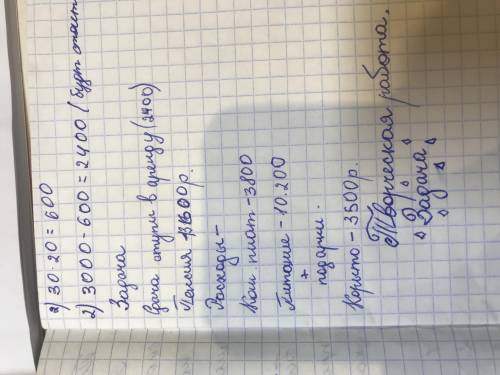 2) 30·20=600
2) 3000-600=2400 (будт
Задача
Сдача ступы в аренду (2400)
Пенсия р.
Расходы-
Ком плат-3800
Питание-10.200
+
подарки.
Корыто-3500р.
Творческая работа.
Задача